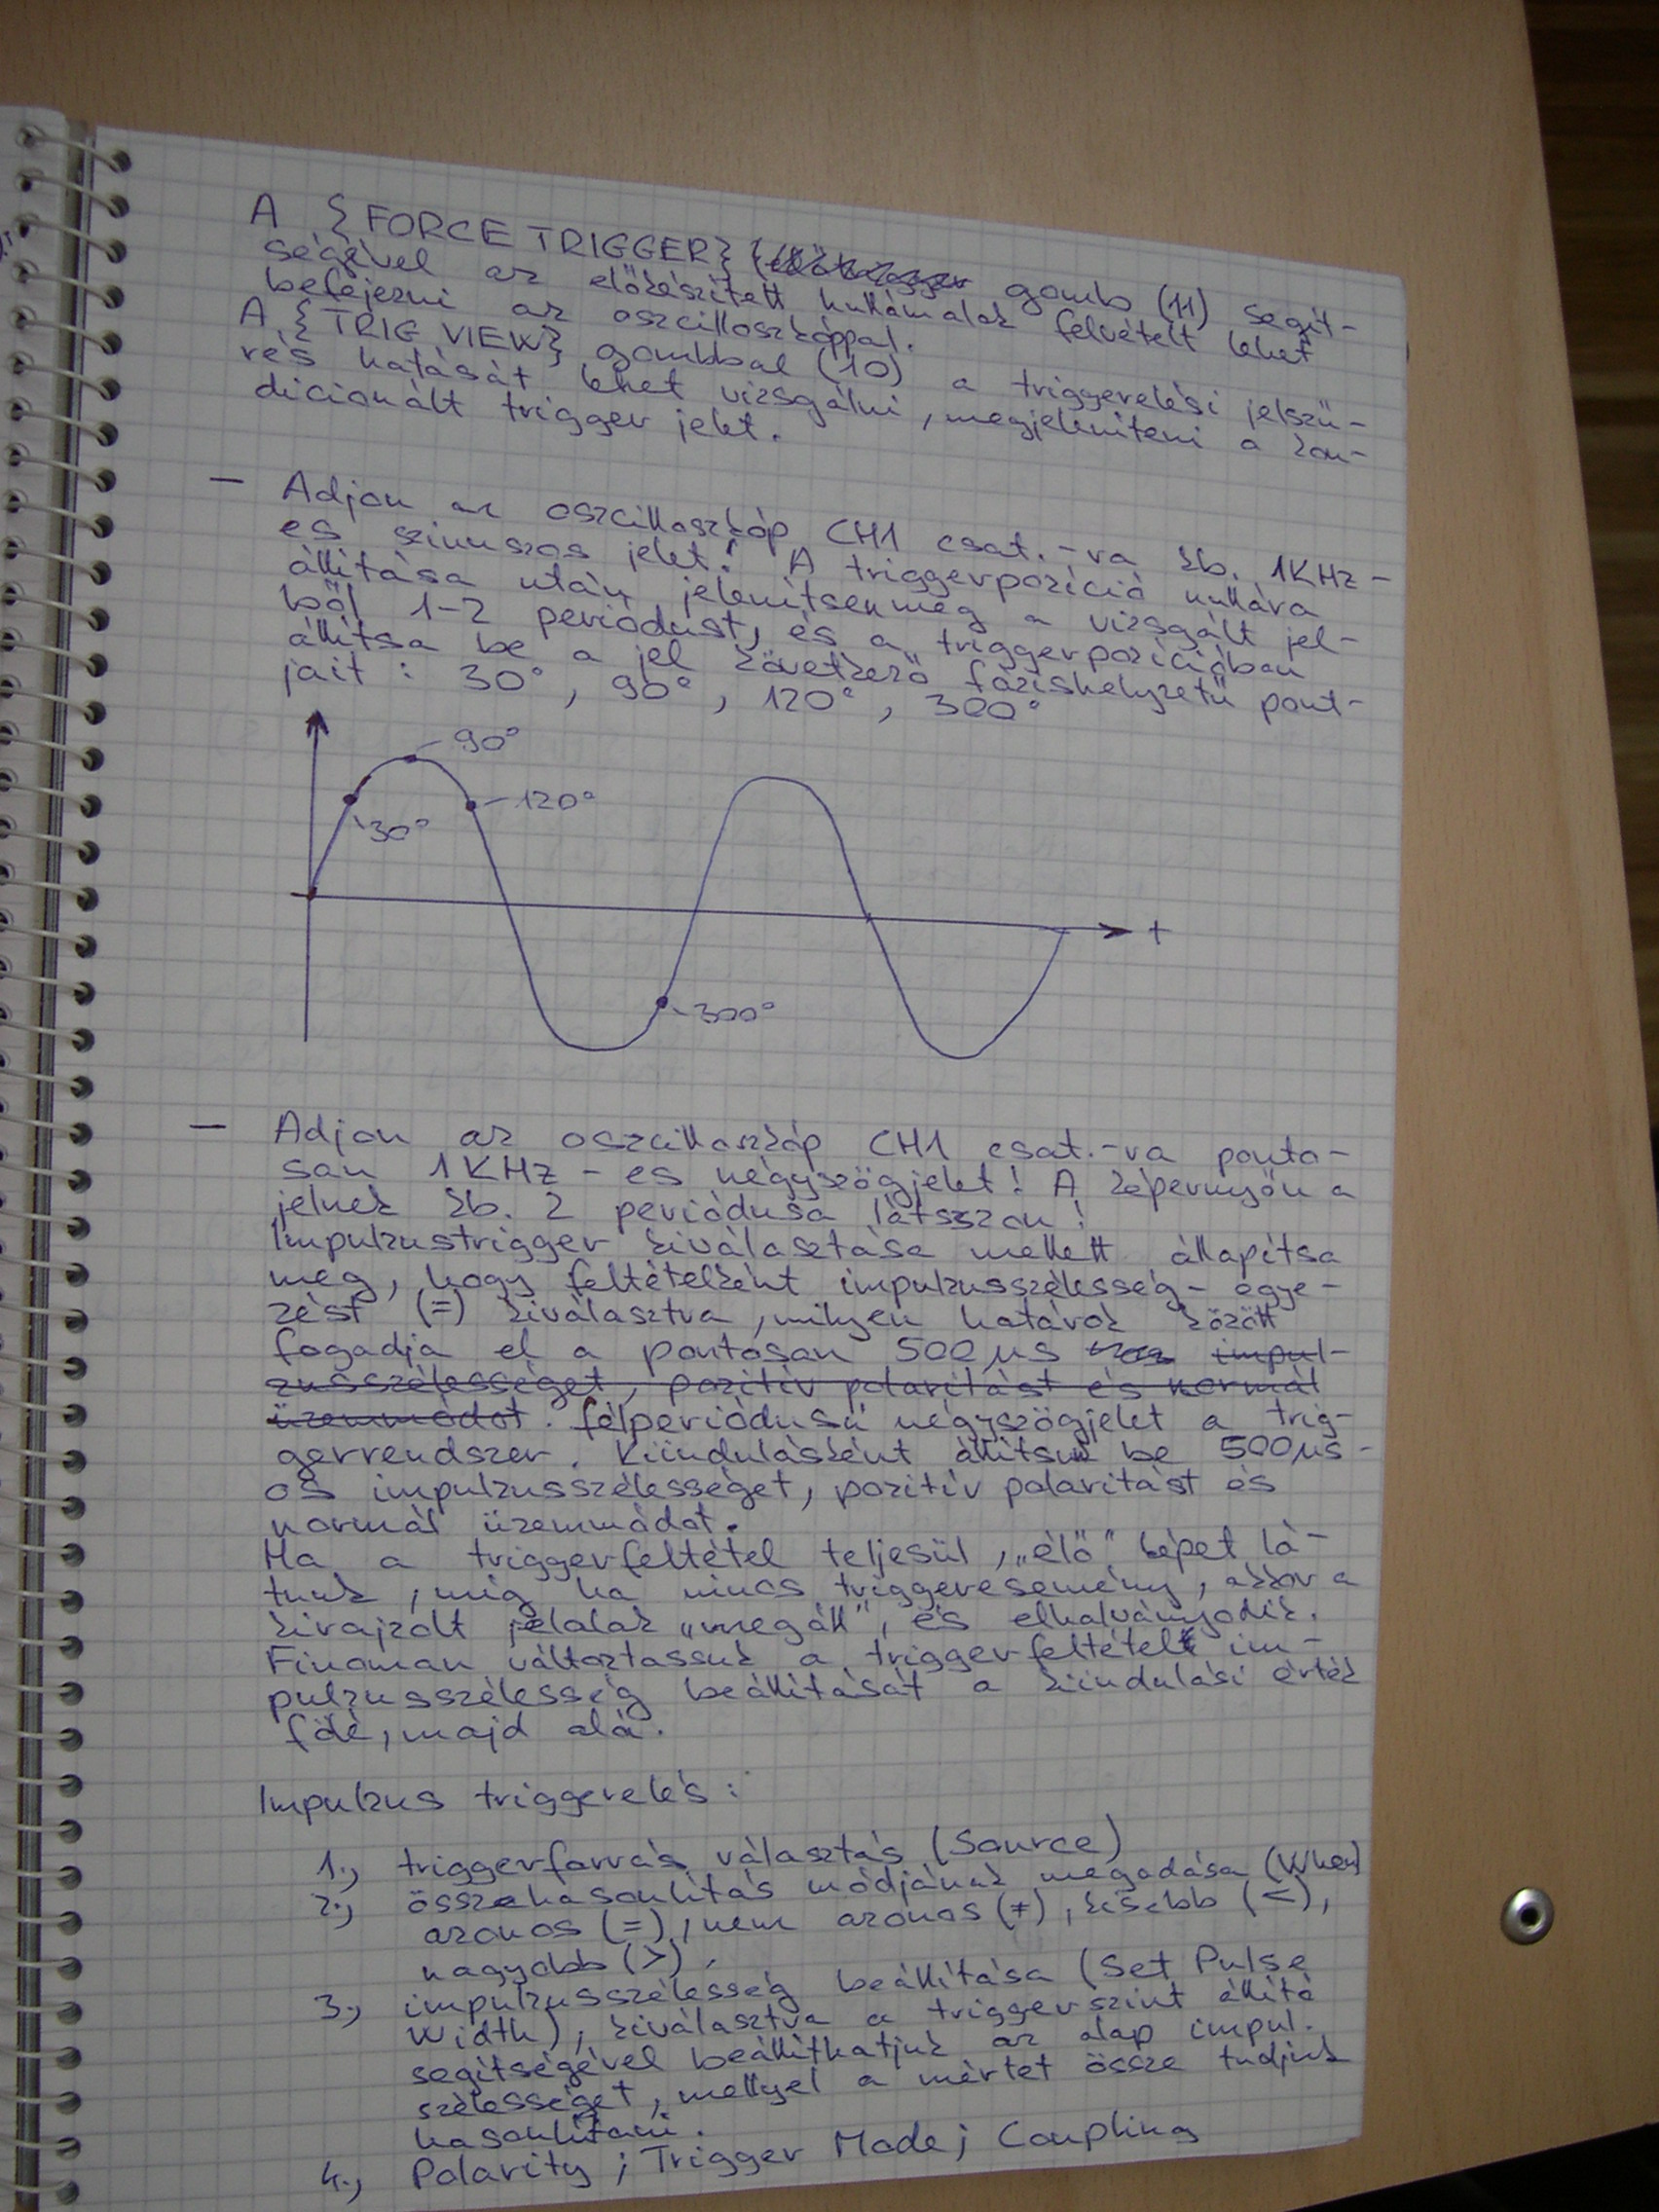 A {FORCE TRIGGER} gomb (11) segít-
ségével az előkészített hullámalak felvételt lehet
befejezni az oszcilloszkóppal.
A {TRIG VIEW} gombbal (10) a triggerelési jelszű-
rés hatását lehet vizsgálni, megjeleníteni a kon-
dicionált trigger jelet.
— Adjon az oszcilloszkóp CH1 csat.-ra kb. 1KHz-
es szinuszos jelet! A triggerpozíció nullára
állítása után jelenítsen meg a vizsgált jel-
ből 1-2 periódust, és a triggerpozícióban
állítsa be a jel következő fázishelyzetű pont-
jait: 30°, 90°, 120°, 300°
90°
120°
30°
t
300°
— Adjon az oszcilloszkóp CH1 csat.-ra ponto-
san 1KHz-es négyszögjelet! A képernyőn a
jelnek kb. 2 periódusa látsszon!
Impulzustrigger kiválasztása mellett állapítsa
meg, hogy feltételként impulzusszélesség-egye-
zést (=) kiválasztva, milyen határok között
fogadja el a pontosan 500µs impul-
zusszélességet, pozitív polaritást és normál
üzemmódot. félperiódusú négyszögjelet a trig-
gerrendszer. Kiindulásként állítsuk be 500µs-
os impulzusszélességet, pozitív polaritást és
normál üzemmódot.
Ha a triggerfeltétel teljesül, „élő" képet lá-
tunk, míg ha nincs triggeresemény, akkor a
kirajzolt jelalak „megáll", és elhalványodik.
Finoman változtassuk a triggerfeltétel im-
pulzusszélesség beállítását a kiindulási érték
fölé, majd alá.
Impulzus triggerelés:
1., triggerforrás választás (Source)
2., összehasonlítás módjának megadása (When)
azonos (=), nem azonos (≠), kisebb (<),
nagyobb (>),
3., impulzusszélesség beállítása (Set Pulse
Width), kiválasztva a triggerszint állító
segítségével beállíthatjuk az alap impul.
szélességet, mellyel a mértet össze tudjuk
hasonlítani.
4., Polarity; Trigger Mode; Coupling